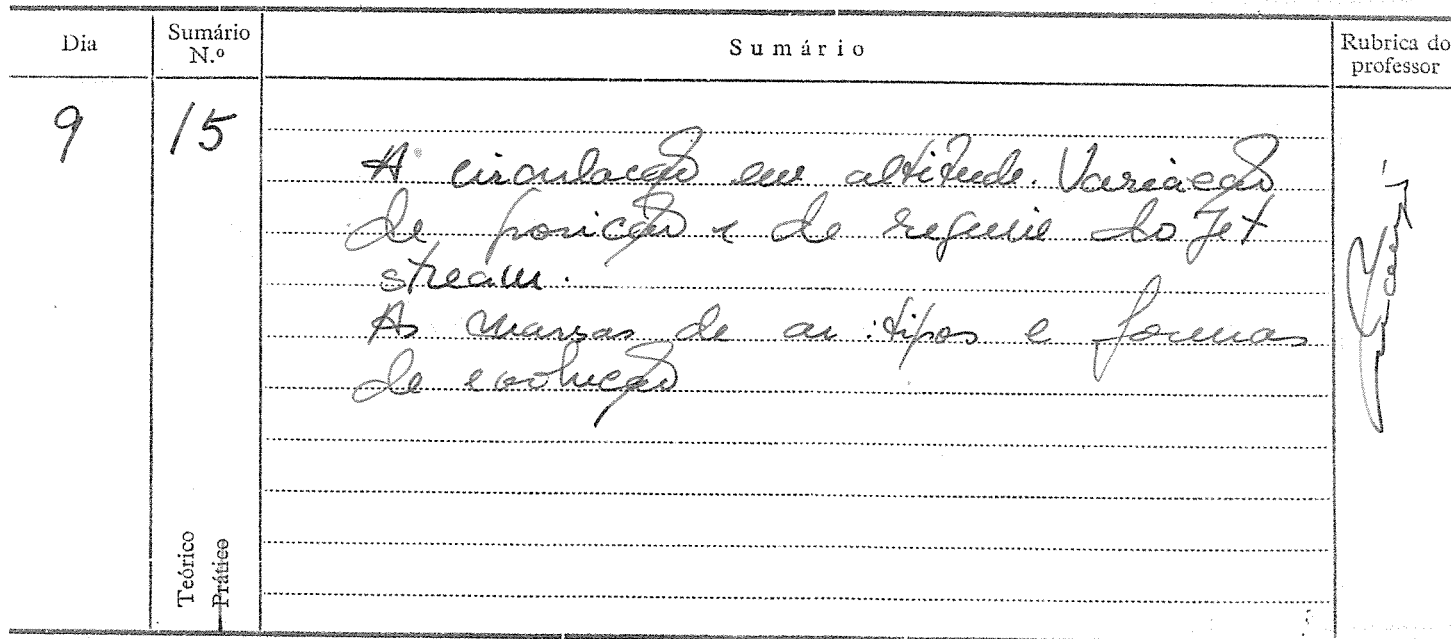 Dia
Sumário N.º
Sumário
Rubrica do professor
9
15
A circulação em altitude. Variação
de posição e de regime do Jet
stream.
As massas de ar: tipos e formas
de evolução
Teórico
Prático